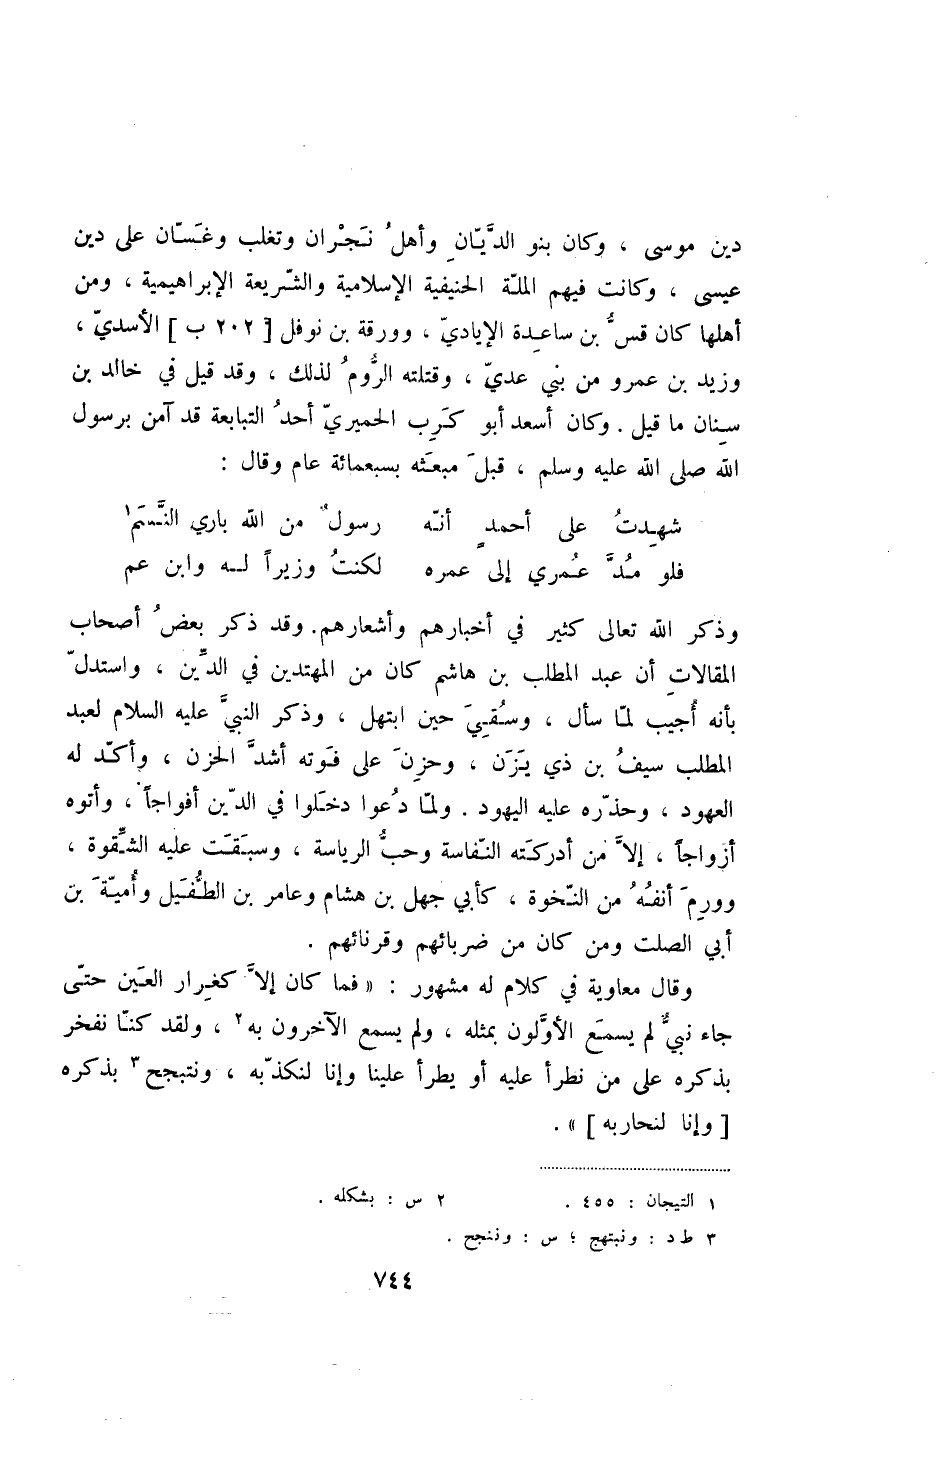 دين موسى ، وكان بنو الدَّيّانِ وأهلُ نَجْران وتغلب وغَسّان على دين
عيسى ، وكانت فيهم الملّة الحنيفية الإسلامية والشّريعة الإبراهيمية ، ومن
أهلها كان قسُّ بن ساعِدة الإياديّ ، وورقة بن نوفل [ ٢٠٢ ب ] الأسديّ ،
وزيد بن عمرو من بني عديّ ، وقتلته الرُّومُ لذلك ، وقد قيل في خالد بن
سِنان ما قيل . وكان أسعد أبو كَرِب الحميريّ أحدُ التبابعة قد آمن برسول
الله صلى الله عليه وسلم ، قبلَ مبعَثه بسبعمائة عام وقال :
شهِدتُ على أحمدٍ أنّه رسولٌ من الله باري النَّسَم١
فلو مُدَّ عُمري إلى عمره لكنتُ وزيراً له وابن عم
وذكر الله تعالى كثير في أخبارهم وأشعارهم. وقد ذكر بعضُ أصحاب
المقالاتِ أن عبد المطلب بن هاشم كان من المهتدين في الدِّين ، واستدلّ
بأنه أُجيب لمّا سأل ، وسُقِيَ حين ابتهل ، وذكر النبيَّ عليه السلام لعبد
المطلب سيفُ بن ذي يَزَن ، وحزِنَ على فَوته أشدَّ الحزن ، وأكّد له
العهود ، وحذّره عليه اليهود . ولمّا دُعوا دخَلوا في الدّين أفواجاً ، وأتوه
أزواجاً ، إلاَّ مَن أدركَته النّفاسة وحبُّ الرياسة ، وسبَقَت عليه الشِّقوة ،
وورِمَ أنفُهُ من النّخوة ، كأبي جهل بن هشام وعامر بن الطُّفَيل وأُميّةَ بن
أبي الصلت ومن كان من ضربائهم وقرنائهم .
وقال معاوية في كلام له مشهور : « فما كان إلاَّ كغِرار العَين حتّى
جاء نبيٌّ لم يسمَع الأوَّلون بمثله ، ولم يسمع الآخرون به٢ ، ولقد كنّا نفخر
بذكره على من نطرأ عليه أو يطرأ علينا وإنا لنكذّبه ، ونتبجح٣ بذكره
[ وإنا لنحاربه ] » .
١ التيجان : ٤٥٥ . ٢ س : بشكله .
٣ ط د : ونبتهج ؛ س : وننجح .
٧٤٤